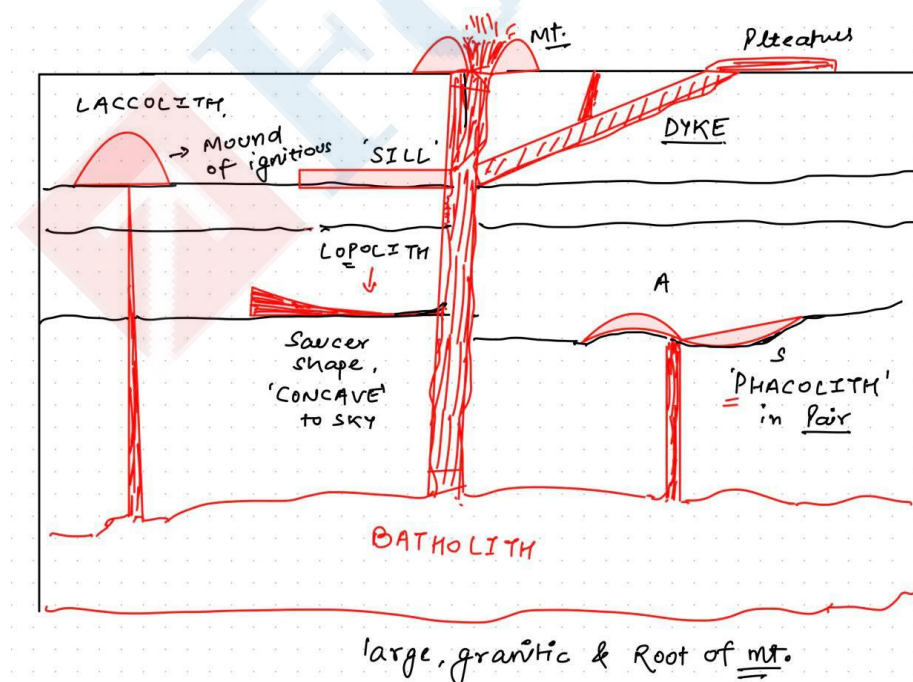 Mt.
Plteatues
LACCOLITH,
→ Mound
of ignitious
'SILL'
DYKE
LOPOLITH
A
Saucer
shape,
'CONCAVE'
to SKY
S
'PHACOLITH'
in Pair
BATHOLITH
large, granitic & Root of mt.